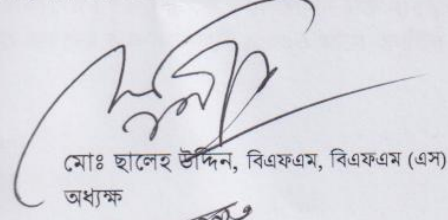 মোঃ ছালেহ উদ্দিন, বিএফএম, বিএফএম (এস)
অধ্যক্ষ